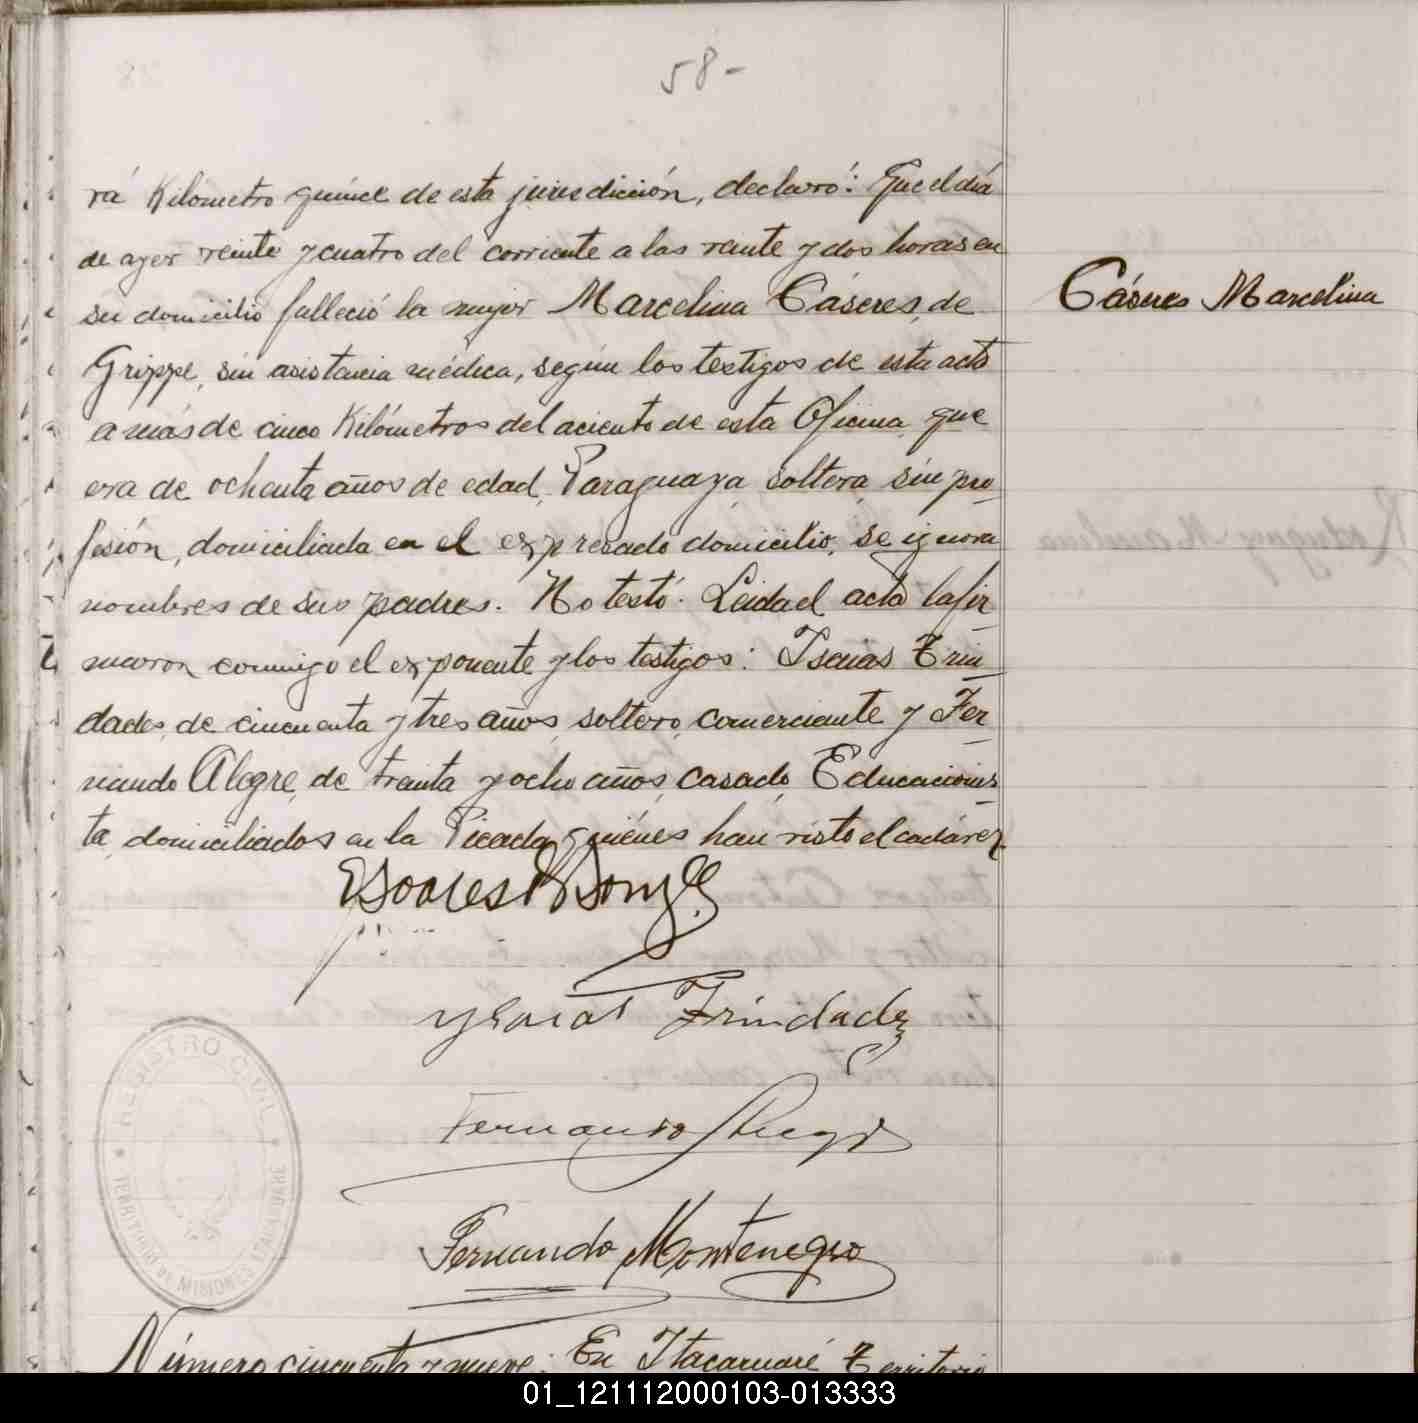 58-
rá Kilómetro quince de esta jurisdicción, declaró: Que el día
de ayer veinte y cuatro del corriente a las vente y dos horas en
su domicilio falleció la mujer Marcelina Cáseres, de
Cáseres Marcelina
Grippe, sin asistencia médica, según los testigos de esta acto
a más de cinco Kilómetros del aciento de esta Oficina, que
era de ochenta años de edad, Paraguaya, soltera, sin pro
fesión, domiciliada en el expresado domicilio, se ignora
nombres de sus padres. No testó. Leida el acta la fir
maron conmigo el exponente y los testigos: Isaias Trin
dades, de cincuenta y tres años, soltero, comerciante y Fer
nando Alegre, de treinta y ocho años, casado, Educacionis
ta, domiciliados en la Picada, quiénes han visto el cadáver.
Ysaias Trindade
Fernando Alegre
Fernando Montenegro
REGISTRO CIVIL
TERRITORIO DE MISIONES ITACARUARE
Número cincuenta y nueve: En Itacaruaré Territorio
01_121112000103-013333